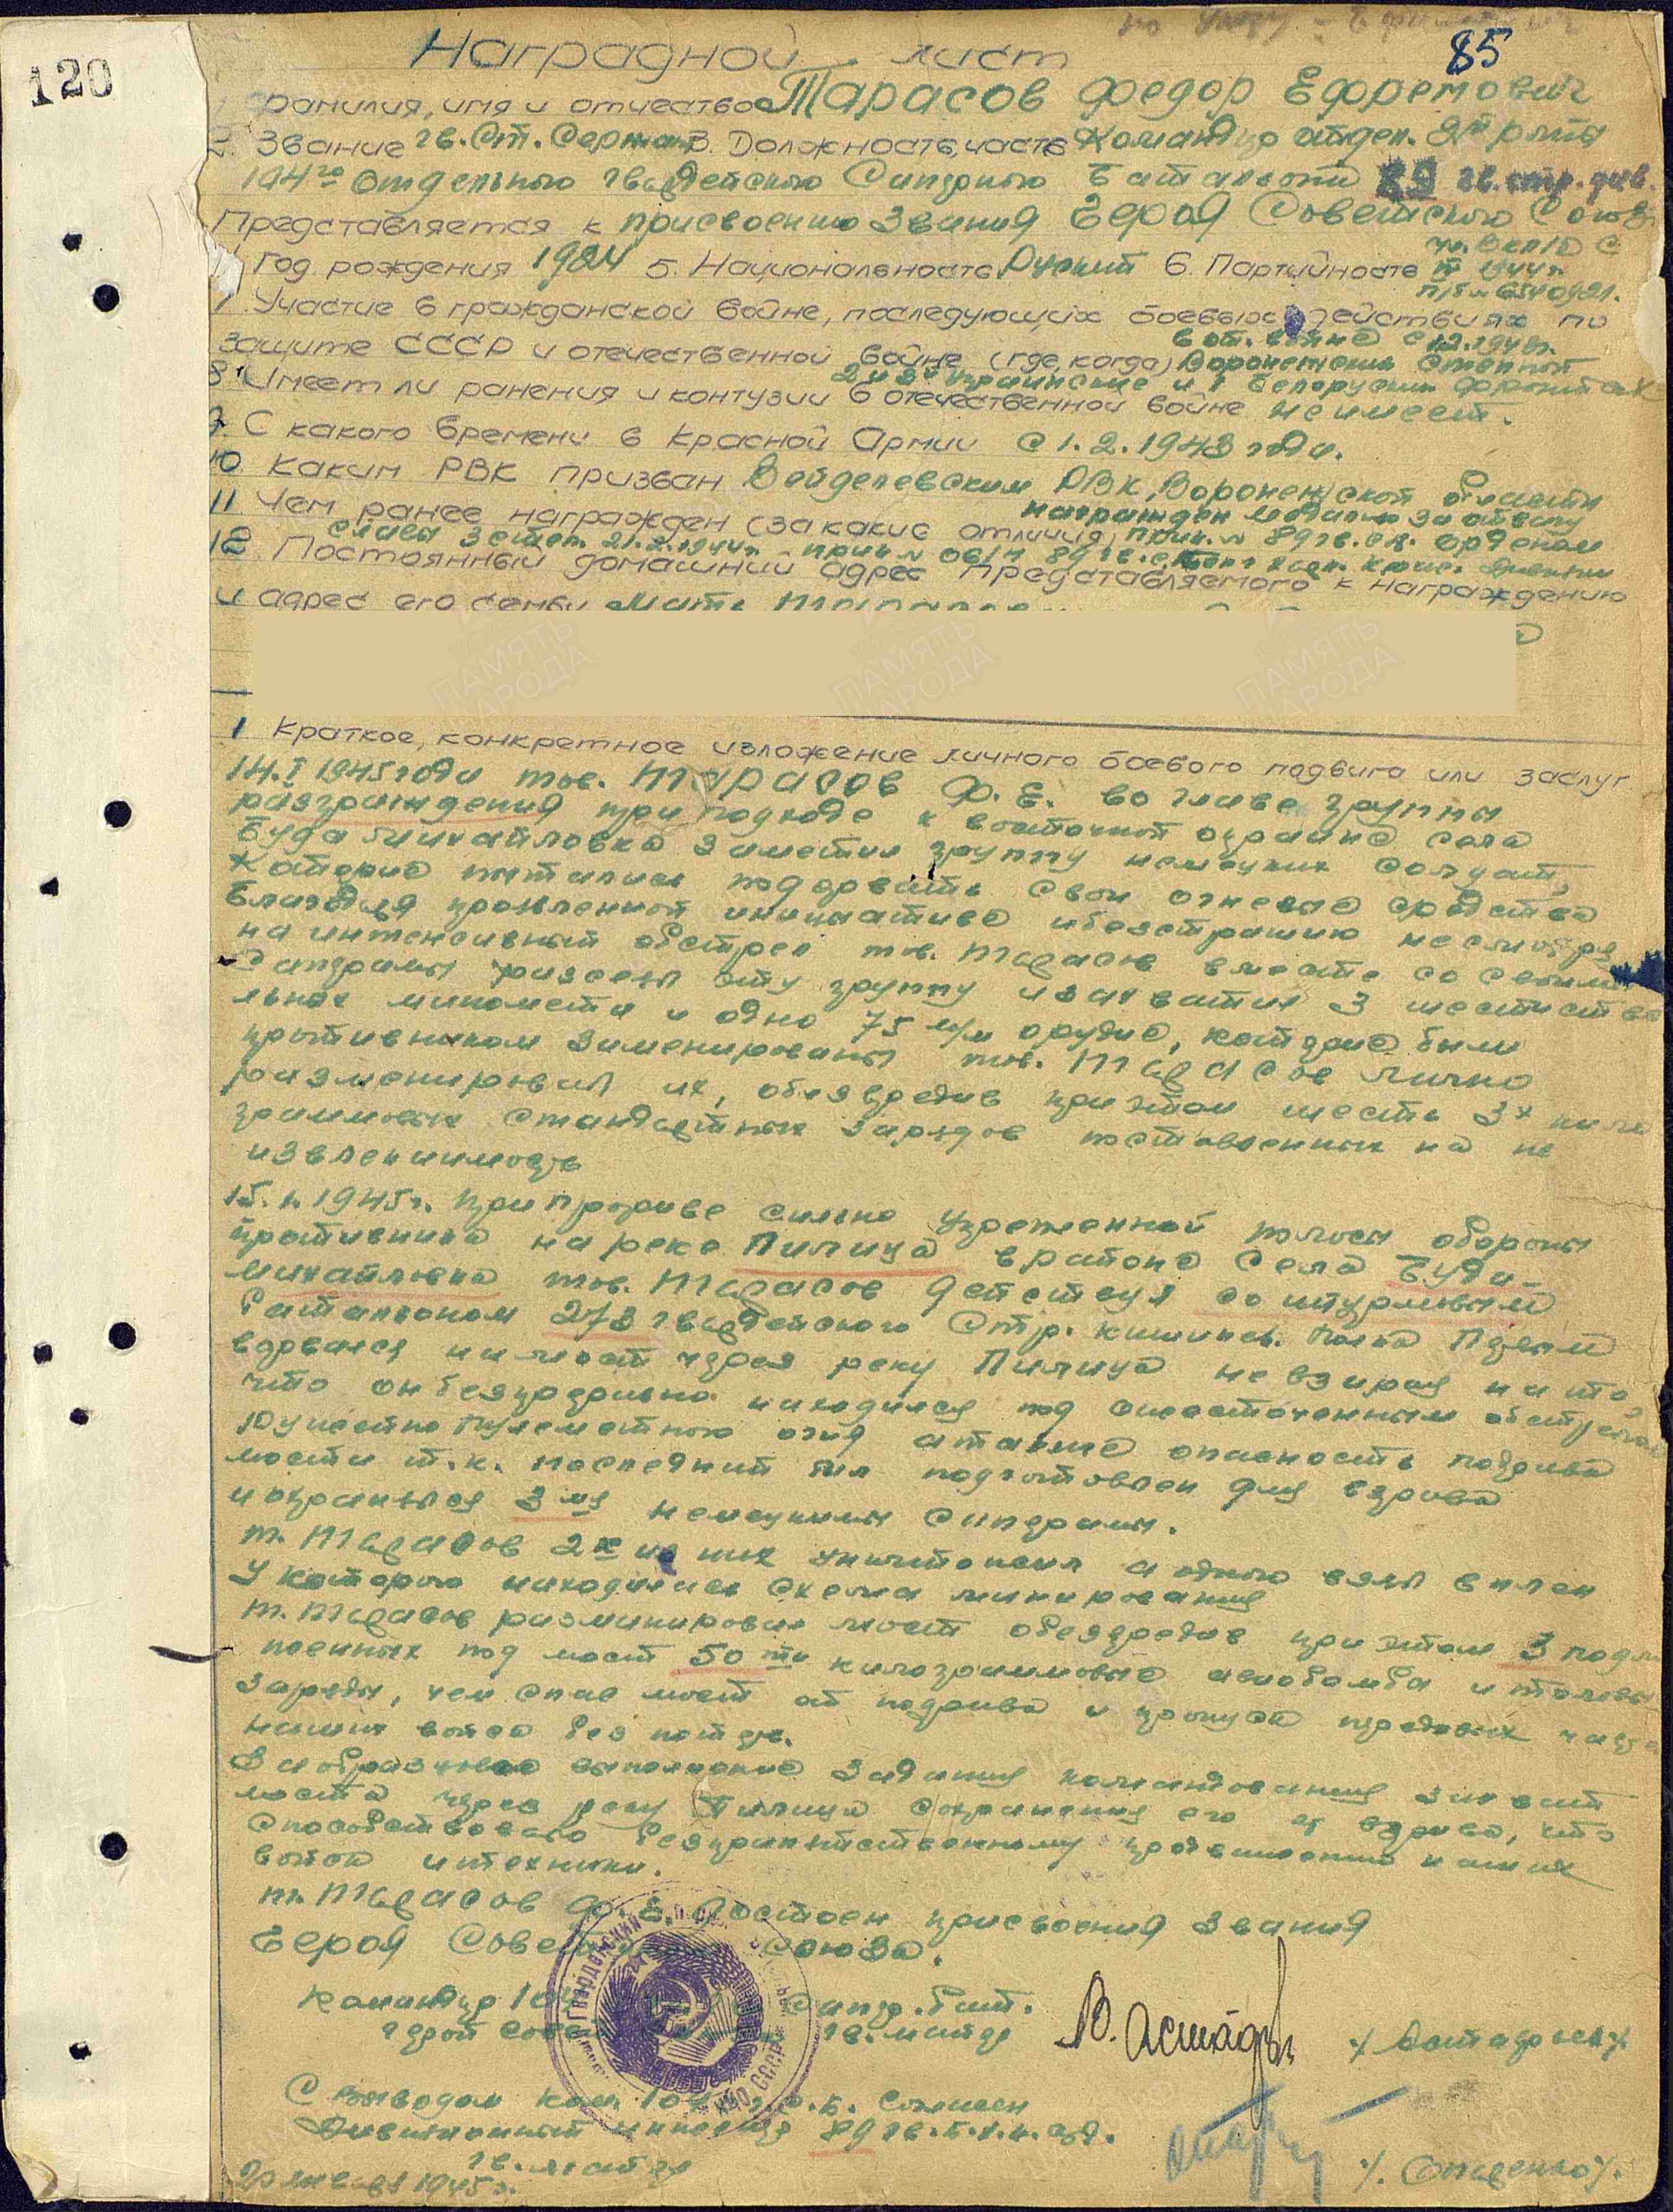 120
85
Наградной лист
фамилия, имя и отчество Тарасов Федор Ефремович
2. Звание гв. Ст. Сержант 3. Должность, часть Командир отдел. 2й роты
104го Отдельного гвардейского Саперного Батальона 89 гв. стр. див.
Представляется к присвоению Звания Героя Советского Союза
Год рождения 1924 5. Национальность Русский 6. Партийность чл. ВКП/б с
1944 г.
п/б №
7 Участие в гражданской войне, последующих боевых действиях по
защите СССР и отечественной войне (где, когда) в от. войне с
Воронежский Степной
2 и 3й Украинские и 1 Белорусский фронтах
8. Имеет ли ранения и контузии в отечественной войне не имеет.
9. С какого времени в Красной Армии с 1.2.1943 года.
10. Каким РВК призван Вейделевским РВК, Воронежской области
11 Чем ранее награжден (за какие отличия) награжден медалью За отвагу
прик. № 89 гв. с.д. орденом
Славы 3 степ. 21.2.1944 г. прик. № 06/н 89 гв. с.
12. Постоянный домашний адрес представляемого к награждению
и адрес его семьи Мать
1 Краткое, конкретное изложение личного боевого подвига или заслуг
14.I 1945 года тов. Тарасов Ф. Е. во главе группы
разграждения при подходе к восточной окраине села
Буда Михайловка заметил группу немецких солдат,
которые пытались подорвать свои огневые средства
Благодаря проявленной инициативе и бесстрашию несмотря
на интенсивный обстрел тов. Тарасов вместе со своими
Саперами рассеял эту группу и захватил 3 шестиство
льных миномета и одно 75 м/м орудие, которые были
противником заменированы тов. Тарасов лично
разменировал их, обезвредив при этом шесть 3х кило
граммовых стандартных зарядов поставленных на не
извлекимость
15.1.1945 г. При прорыве сильно укрепленной полосы обороны
противника на реке Пилица в районе села Буда-
Михайловка тов. Тарасов действуя со штурмовым
Батальоном 273 гвардейского Стр. Кишинев. полка Первым
ворвался на мост через реку Пилица невзирая на то,
что он безпрерывно находился под ожесточенным обстрелом
Ружейно Пулеметного огня а также опасность подрыва
моста т.к. последний был подготовлен для взрыва
и охранялся 3мя немецкими Саперами.
т. Тарасов 2х из них уничтожил а одного взял в плен
у которого находилась схема минирования
т. Тарасов разминировал мост обезвредив при этом 3 подло
женных под мост 50ти килограммовые авиабомбы и толовые
заряды, чем спас мост от подрыва и пропуск передовых часте
наших войск без потерь.
За образцовое выполнение задания командования захват
моста через реку Пилица сохранения его от взрыва, что
способствовало безпрепятственному продвижению наших
войск и техники.
т. Тарасов Ф. Е. Достоен присвоения Звания
Героя Советского Союза.
Командир 104 Сапер. бат.
Герой Сове гв. майор В. Астафьев /Астафьев/
С выводом ком. 104 г.о.с.б. Согласен
Дивизионный инженер 89 гв. Б.к.с.д.
гв. майор
января 1945 г.
ПАМЯТЬ НАРОДА
ПАМЯТЬ НАРОДА
ПАМЯТЬ НАРОДА